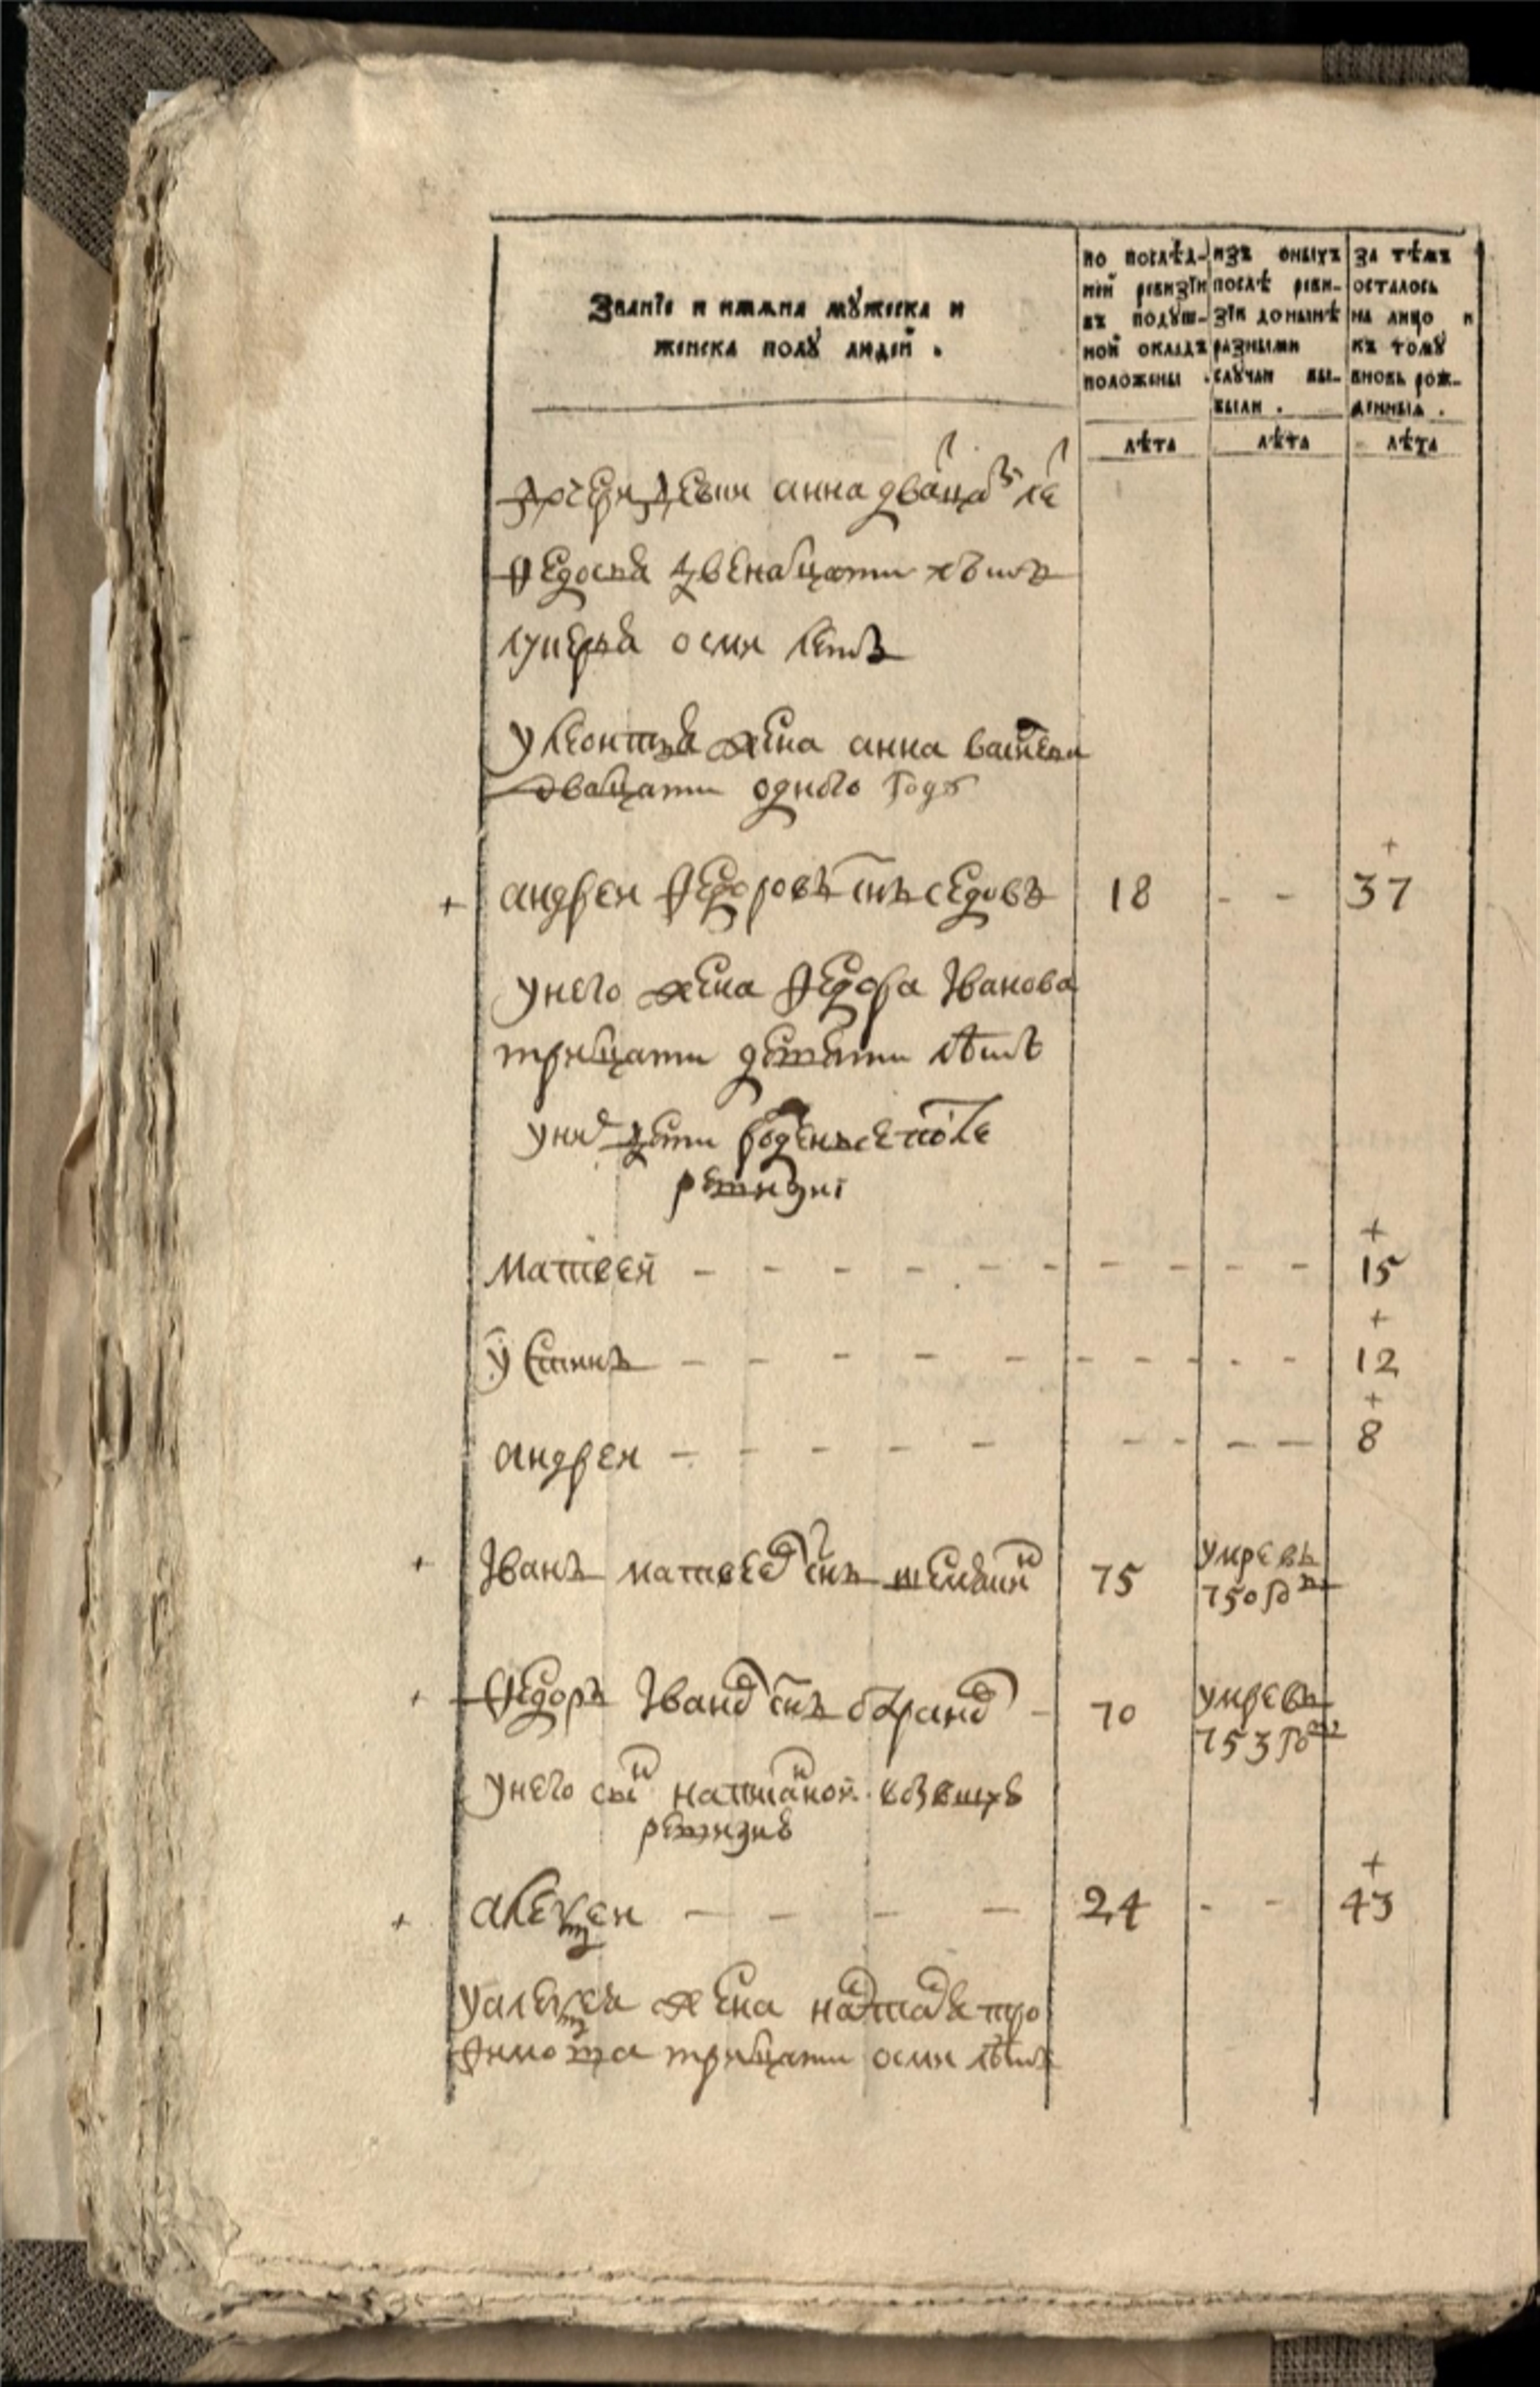 Званїе и имяна мꙋжеска и
женска полꙋ людей .
по послѣд-
ней ревизїи
въ подꙋш-
ной окладъ
положены .
изъ оныхъ
послѣ реви-
зїи донынѣ
разными
слꙋчаи вы-
были .
за тѣмъ
осталось
на лицо и
къ томꙋ
вновь рож-
денныя .
лѣта
лѣта
лѣта
дочери девки анна дванацⷮ леⷮ
федосья двенатцати лѣтъ
лукерья осми летъ
у леонтья жена анна
дватцати одного годꙋ
+ андреи федоровъ сн҃ъ седовъ 18 - - + 37
унего жена федора Iванова
тритцати девяти лѣтъ
унихъ дети рожденые после
ревизиі
матвей - - - - - - - - + 15
устинъ - - - - - - - - + 12
андреи - - - - - - - - + 8
+ Iванъ матвеевъ сн҃ъ 75 умре въ
750 го
+ федоръ Iвановъ сн҃ъ 70 умре въ
753 го
унего сынъ написаной въ
ревизиѣ
+ алексеи - - - - 24 - - + 43
уалексея жена настасья тро
фимова тритцати осми лѣтъ